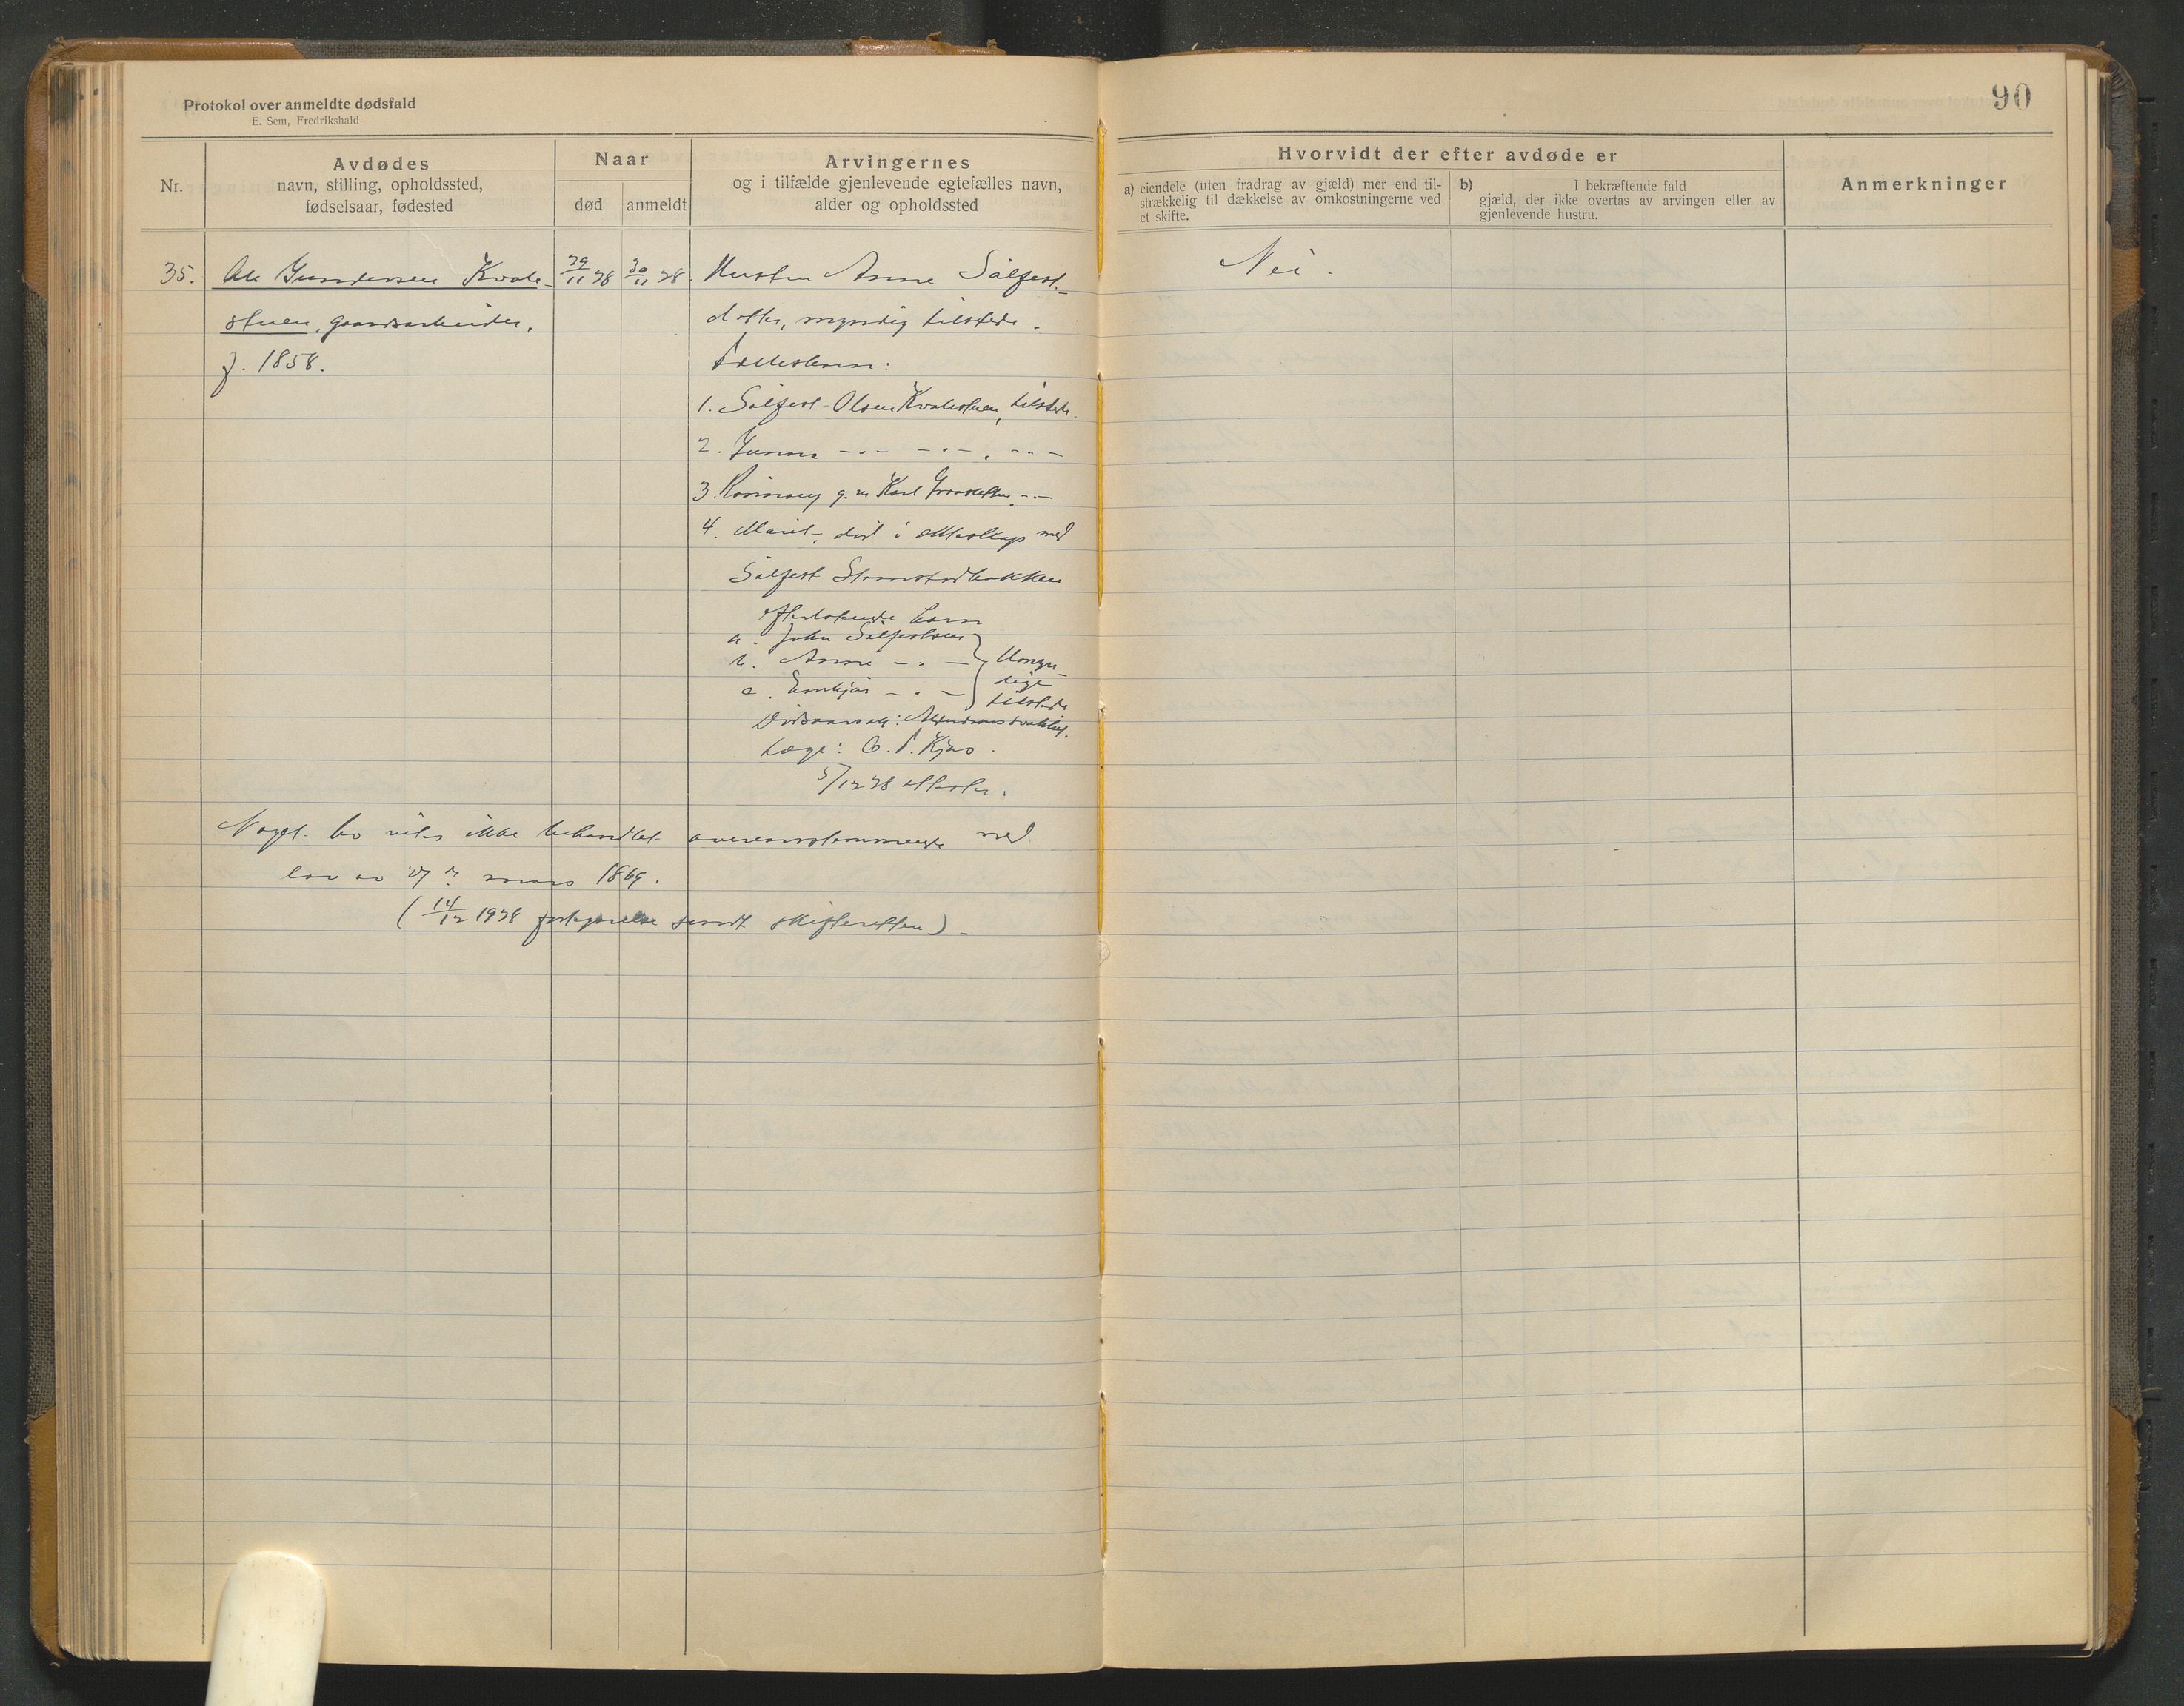 Protokol over anmeldte dødsfald
E. Sem, Fredrikshald
90
Nr.
Avdødes
navn, stilling, opholdssted,
fødselsaar, fødested
Naar
død
anmeldt
Arvingernes
og i tilfælde gjenlevende egtefælles navn,
alder og opholdssted
Hvorvidt der efter avdøde er
a) eiendele (uten fradrag av gjæld) mer end til-
strækkelig til dækkelse av omkostningerne ved
et skifte.
b) I bekræftende fald
gjæld, der ikke overtas av arvingen eller av
gjenlevende hustru.
Anmerkninger
35.
Ole Gundersen Kvale-
stuen, gaardsarbeider,
f. 1858.
29/11 28
30/11 28.
Hustru Anne Salfest-
dotter, myndig tilstede.
Fællesbarn:
1. Salfest Olsen Kvalestuen, tilstede.
2. Gunnar -"- -"-, -"-
3. g. m. Karl -"-
4. Marit, død i ekteskap med
Salfest
efterlatende barn
a. John Salfestsen
b. Anne - " -
c. - " -
} Umyn-
dige
tilstede
Dødsaarsak:
Læge: O. P. Kjos.
5/12 28 attester.
Noget bo vites ikke behandlet overensstemmende med
lov av mars 1869.
(14/12 1928 sendt skifteretten).
Nei.